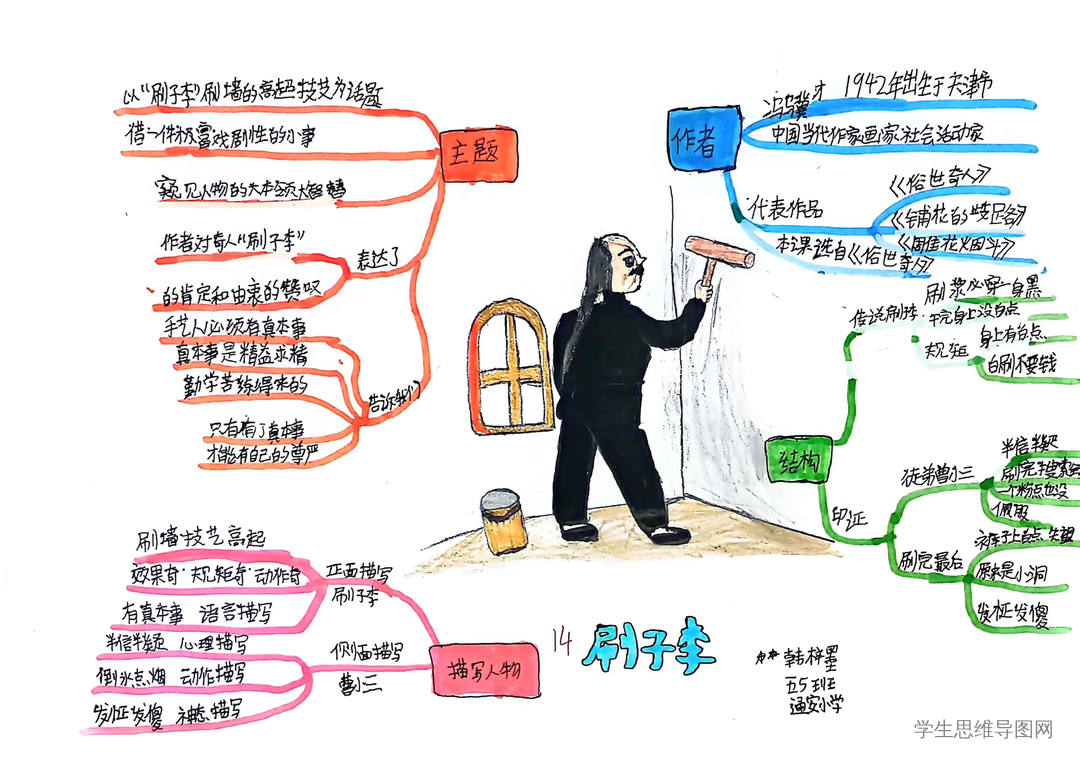 主题
以“刷子李”刷墙的高超技艺为话题
借一件极富戏剧性的小事
窥见人物的大本领大智慧
表达了
作者对奇人“刷子李”
的肯定和由衷的赞叹
告诉我们
手艺人必须有真本事
真本事是精益求精
勤学苦练得来的
只有有了真本事
才能有自己的尊严
作者
冯骥才 1942年出生于天津市
中国当代作家画家社会活动家
代表作品
《俗世奇人》
《铺花的歧路》
本课选自《俗世奇人》
结构
刷浆必穿一身黑
干完身上没白点
规矩
身上有白点
白刷不要钱
印证
徒弟曹小三
半信半疑
一个粉点也没
佩服
刷完最后
原来是小洞
发怔发傻
描写人物
正面描写
刷子李
刷墙技艺高超
效果奇 规矩奇 动作奇
有真本事 语言描写
侧面描写
曹小三
半信半疑 心理描写
倒水点烟 动作描写
发怔发傻 神态描写
14 刷子李
韩梓墨
五5班
通安小学
学生思维导图网